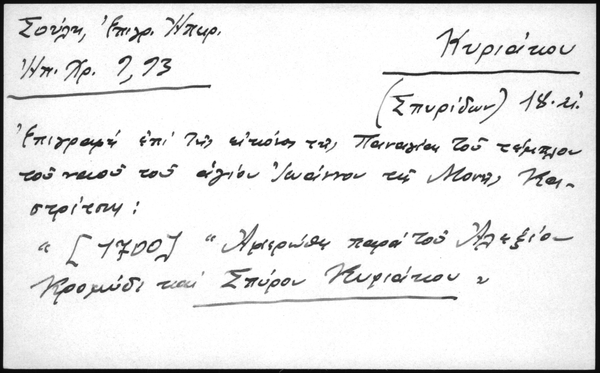 Σούλη, Ἐπιγρ. Ἠπειρ.
Ἠπ. Χρ. 9, 93
Κυριάκου
(Σπυρίδων) 18. αἰ.
Ἐπιγραφή ἐπί τῆς εἰκόνος τῆς Παναγίας τοῦ τέμπλου
τοῦ ναοῦ τοῦ ἁγίου Ἰωάννου τῆς Μονῆς Κα-
στρίτσης:
" [1700] " Ἀφιερώθη παρά τοῦ Ἀλεξίου
Κρομύδι καί Σπύρου Κυριάκου "